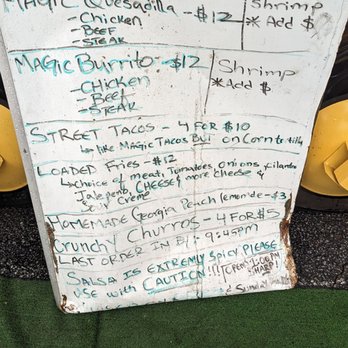 MAGIC Quesadilla - $12
- Chicken
- BEEF
- STEAK
Shrimp
* Add $
MAGIC Burrito - $12
- CHICKEN
- Beef
- STEAK
Shrimp
* Add $
STREET TACOS - 4 FOR $10
↳ like MAGIC Tacos But on Corn tortilla
LOADED Fries - $12
↳ choice of meat, Tomatoes, onions, cilantro
Jalapeno, CHEESE & more cheese &
Sour Creme
HOMEMADE Georgia Peach lemonade - $3
Crunchy Churros - 4 FOR $5
LAST ORDER IN BY 9:45PM
SALSA IS EXTREMLY Spicy PLEASE
USE with CAUTION!!!
OPEN 1:00PM
SHARP!
Sunday